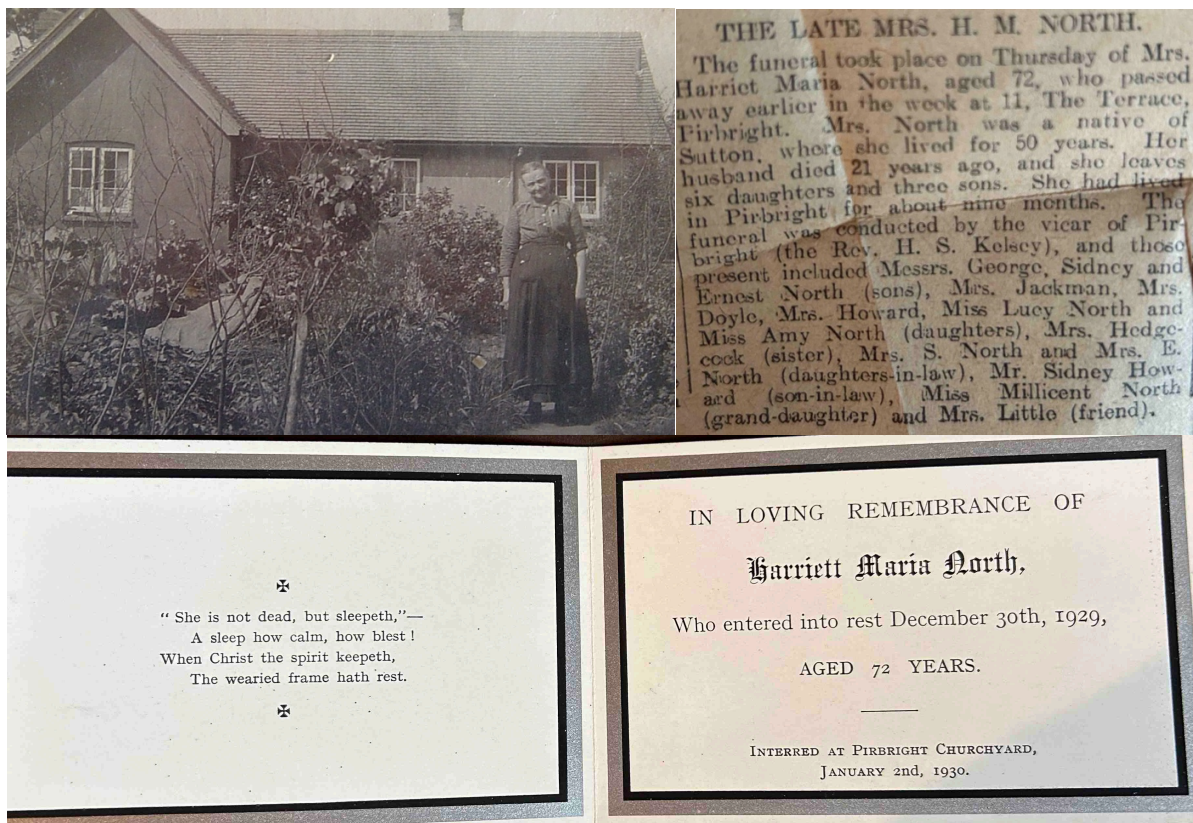 THE LATE MRS. H. M. NORTH.
The funeral took place on Thursday of Mrs.
Harriet Maria North, aged 72, who passed
away earlier in the week at 11, The Terrace,
Pirbright. Mrs. North was a native of
Sutton, where she lived for 50 years. Her
husband died 21 years ago, and she leaves
six daughters and three sons. She had lived
in Pirbright for about nine months. The
funeral was conducted by the vicar of Pir-
bright (the Rev. H. S. Kelsey), and those
present included Messrs. George, Sidney and
Ernest North (sons), Mrs. Jackman, Mrs.
Doyle, Mrs. Howard, Miss Lucy North and
Miss Amy North (daughters), Mrs. Hedge-
cock (sister), Mrs. S. North and Mrs. E.
North (daughters-in-law), Mr. Sidney How-
ard (son-in-law), Miss Millicent North
(grand-daughter) and Mrs. Little (friend).
“ She is not dead, but sleepeth,”—
A sleep how calm, how blest !
When Christ the spirit keepeth,
The wearied frame hath rest.
IN LOVING REMEMBRANCE OF
Harriett Maria North,
Who entered into rest December 30th, 1929,
AGED 72 YEARS.
INTERRED AT PIRBRIGHT CHURCHYARD,
JANUARY 2nd, 1930.